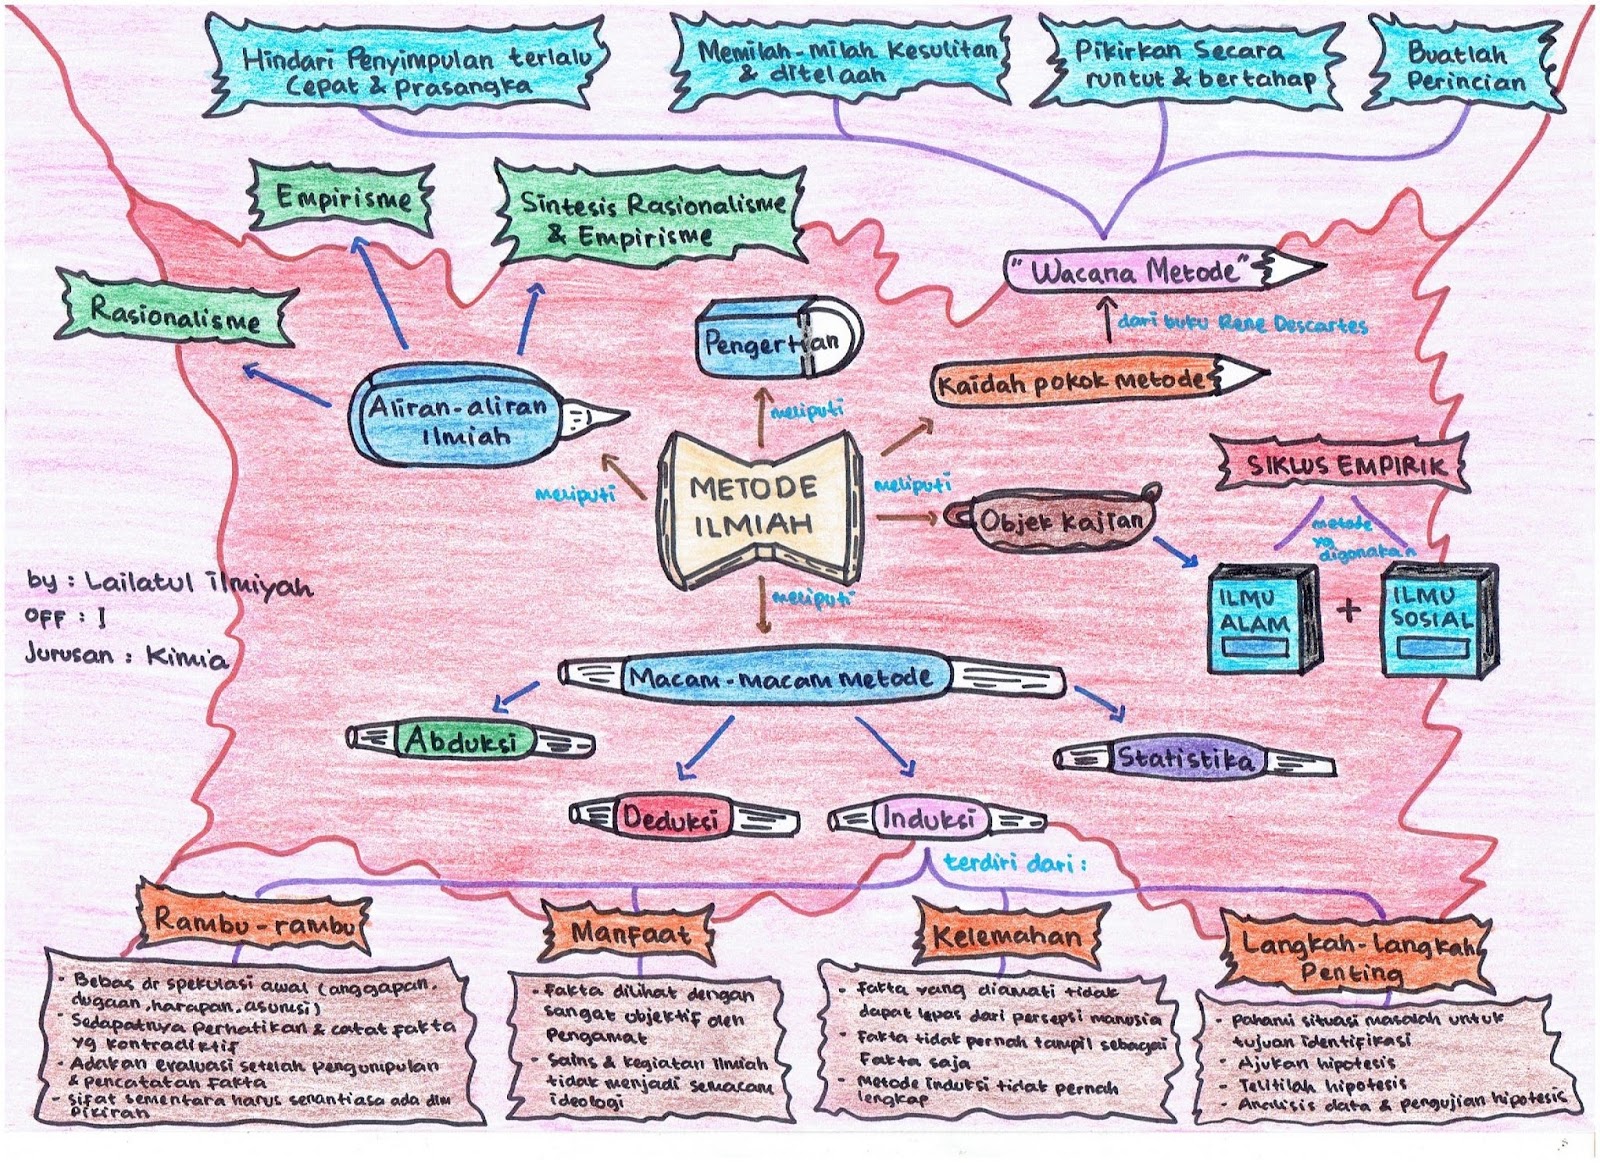 Hindari Penyimpulan terlalu
Cepat & prasangka
Memilah-milah Kesulitan
& ditelaah
Pikirkan Secara
runtut & bertahap
Buatlah
Perincian
Empirisme
Sintesis Rasionalisme
& Empirisme
Rasionalisme
"Wacana Metode"
dari buku Rene Descartes
Pengertian
Kaidah pokok metode
Aliran-aliran
Ilmiah
meliputi
METODE
ILMIAH
meliputi
meliputi
meliputi
Objek Kajian
SIKLUS EMPIRIK
metode
yg
digonakan
ILMU
ALAM
+
ILMU
SOSIAL
by : Lailatul ilmiyah
OFF : I
Jurusan : Kimia
Macam-macam metode
Abduksi
Deduksi
Induksi
Statistika
terdiri dari :
Rambu-rambu
- Bebas dr spekulasi awal (anggapan,
dugaan, harapan, asumsi)
- Sedapatnya perhatikan & catat fakta
yg kontradiktif
- Adakan evaluasi setelah pengumpulan
& pencatatan fakta
- Sifat sementara harus senantiasa ada dlm
pikiran
Manfaat
- Fakta dilihat dengan
sangat objektif oleh
Pengamat
- Sains & kegiatan Ilmiah
tidak menjadi semacam
ideologi
Kelemahan
- Fakta yang diamati tidak
dapat lepas dari persepsi manusia
- Fakta tidak pernah tampil sebagai
Fakta saja
- Metode induksi tidak pernah
lengkap
Langkah-langkah
Penting
- Pahami situasi masalah untuk
tujuan identifikasi
- Ajukan hipotesis
- Telitilah hipotesis
- Analisis data & pengujian hipotesis